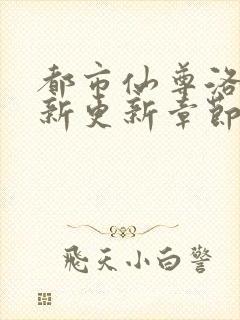 都市仙尊洛
新更新章節
飛天小白警